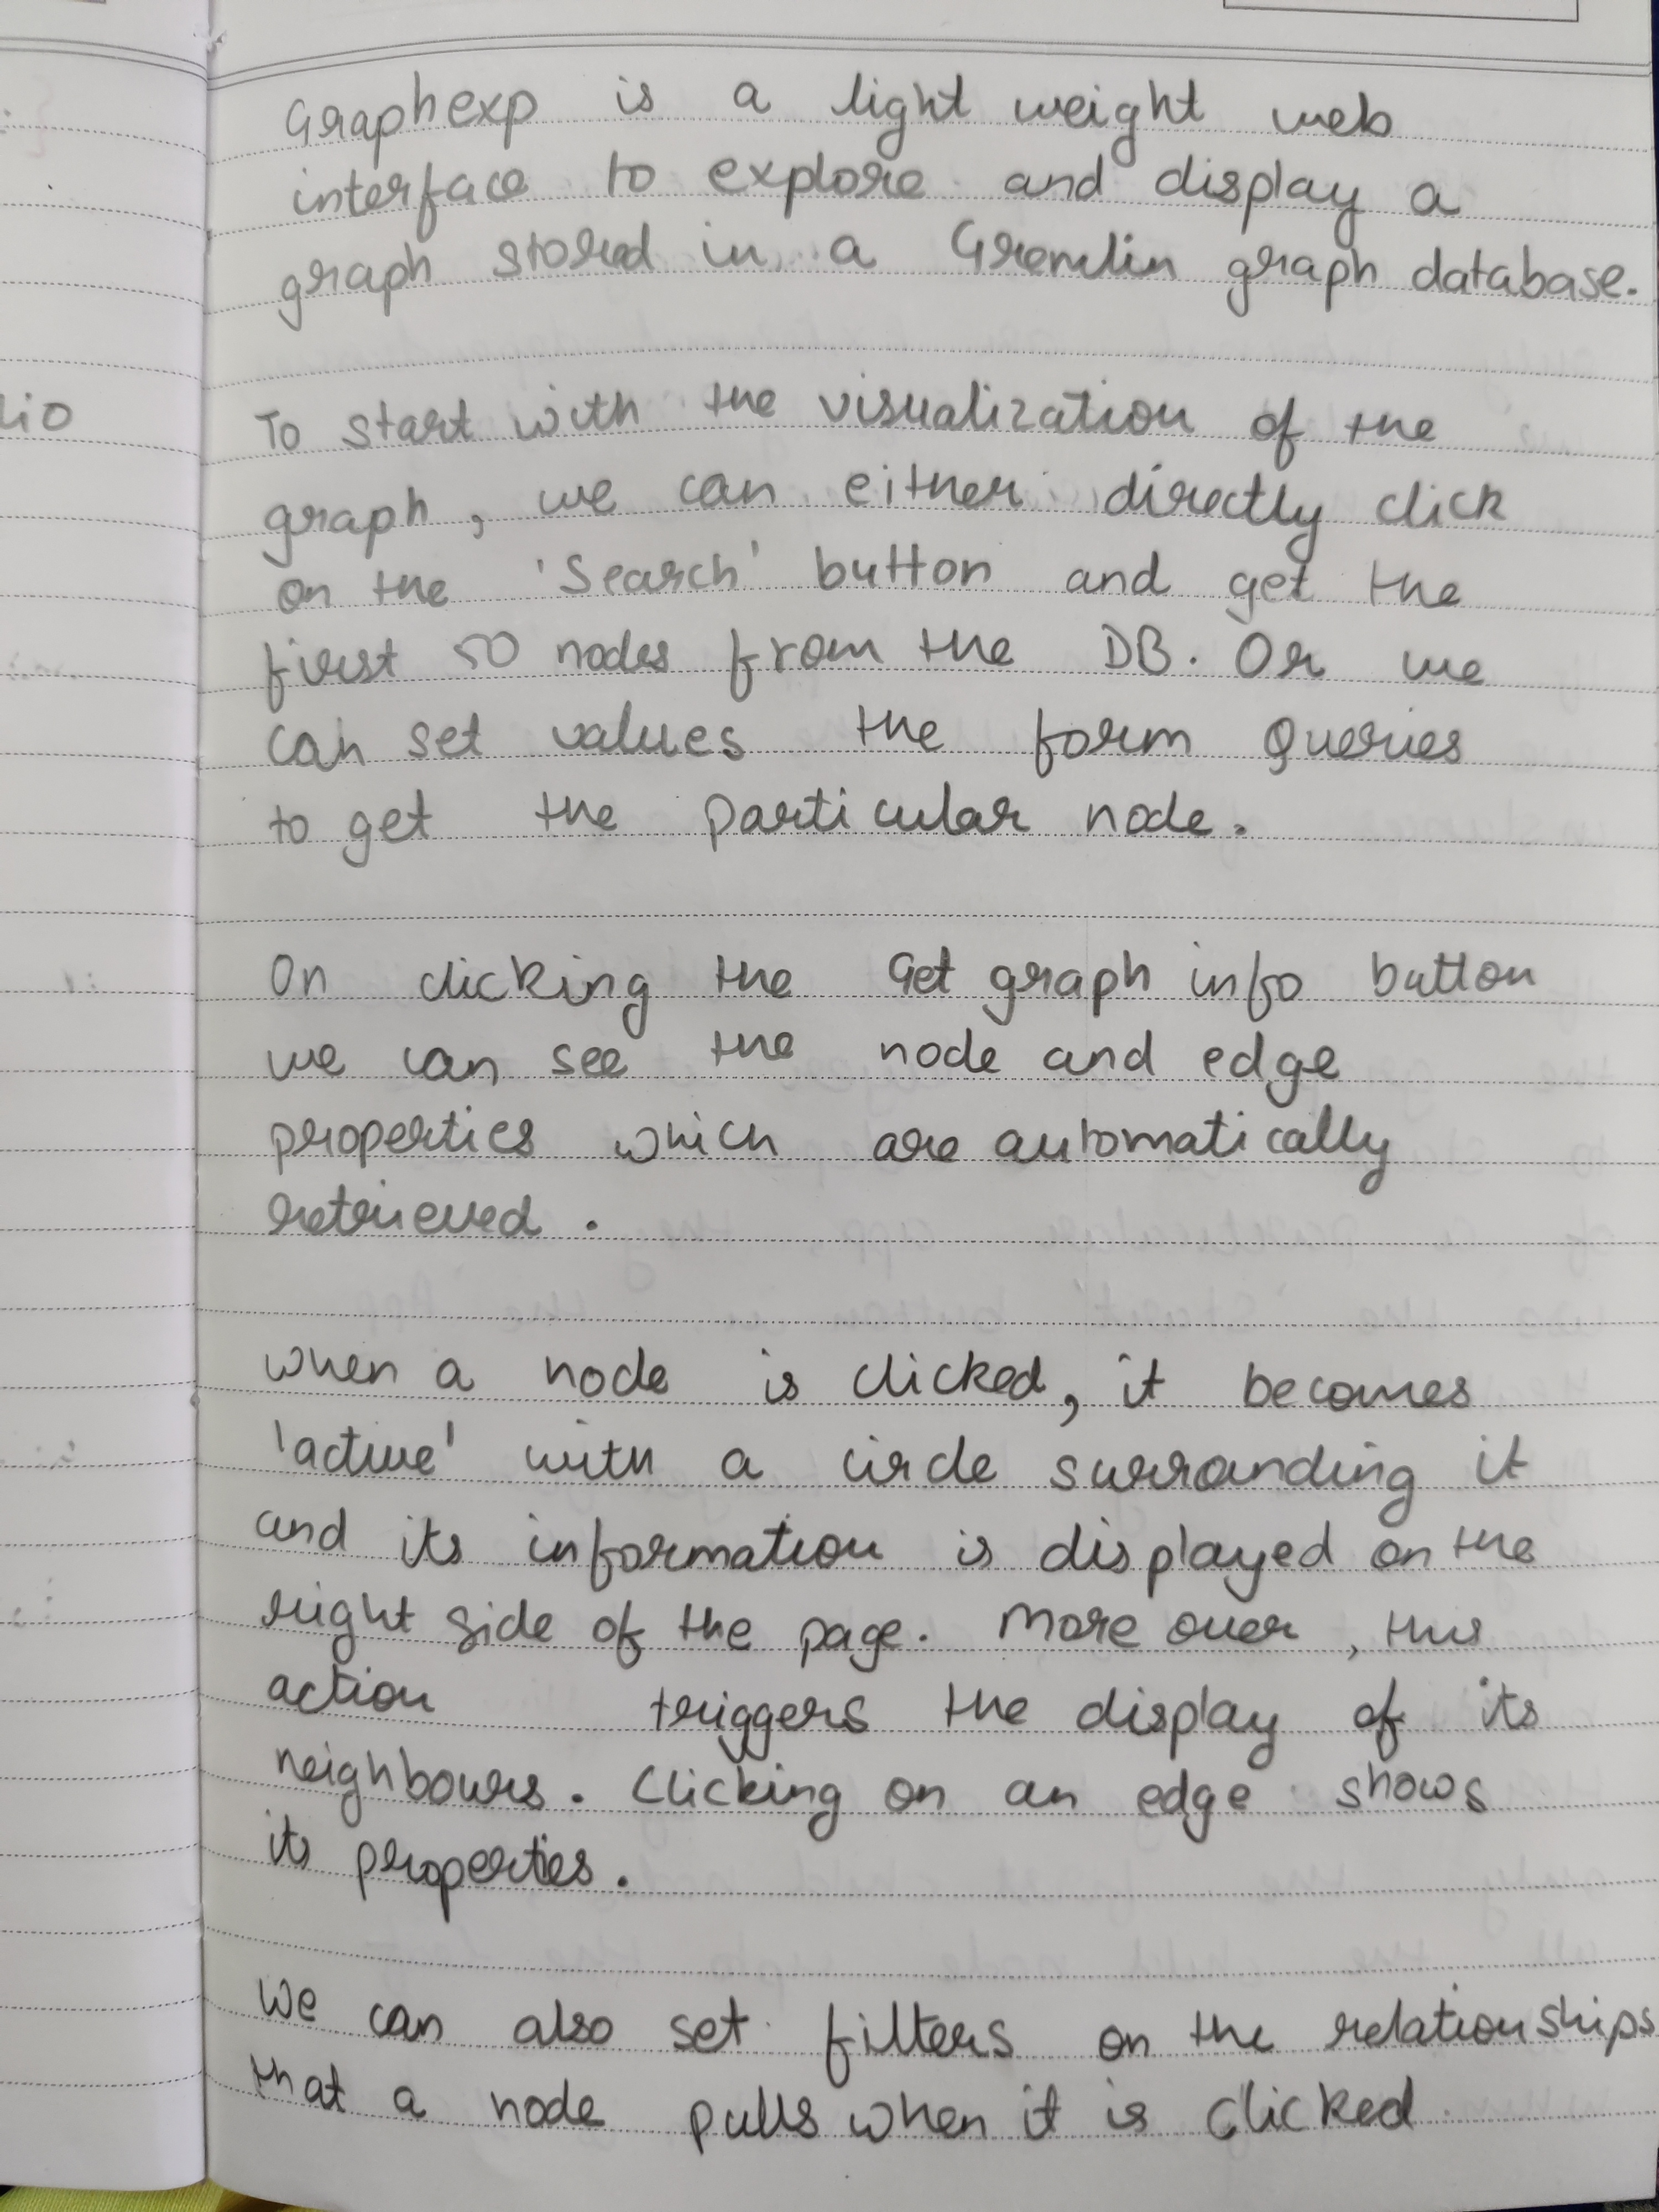 Graphexp is a light weight web
interface to explore and display a
graph stored in a Gremlin graph database.
To start with the visualization of the
graph, we can either directly click
on the 'Search' button and get the
first 50 nodes from the DB. Or we
can set values the form Queries
to get the particular node.
On clicking the Get graph info button
we can see the node and edge
properties which are automatically
retrieved.
when a node is clicked, it becomes
'active' with a circle surranding it
and its information is displayed on the
right side of the page. More over, this
action triggers the display of its
neighbours. Clicking on an edge shows
its properties.
We can also set filters on the relationships
that a node pulls when it is clicked